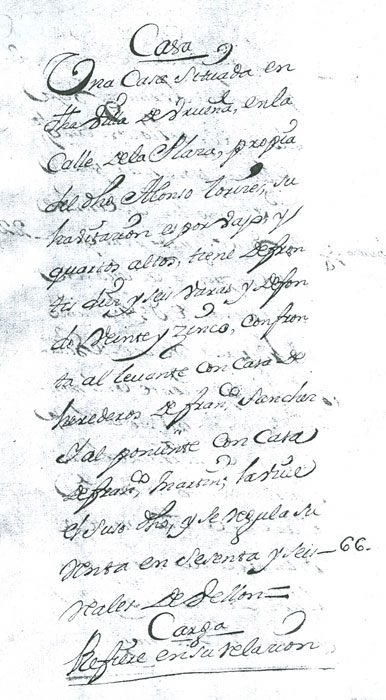 Casa
Una Casa Situada en
dha Villa de Urueña, en la
Calle, de la Plaza, propia
del dho, Alonso Torres, su
havitazion es por vajo, y
quartos altos, tiene de fron
tis diez y seis varas y de fon
do Veinte y zinco, confron
ta al levante con Casa de
herederos de fran.co Sanchez
y al poniente con Casa
de fran.co Martin; la vive
el suso dho, y se regula su
renta en sesenta y seis — 66.
reales de Vellon =
Carga
Refiere en su relacion